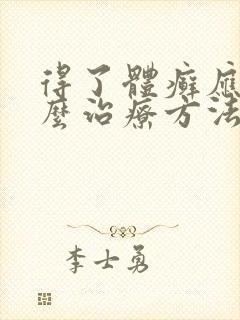 得了體癬應
麼治療方法
李士勇